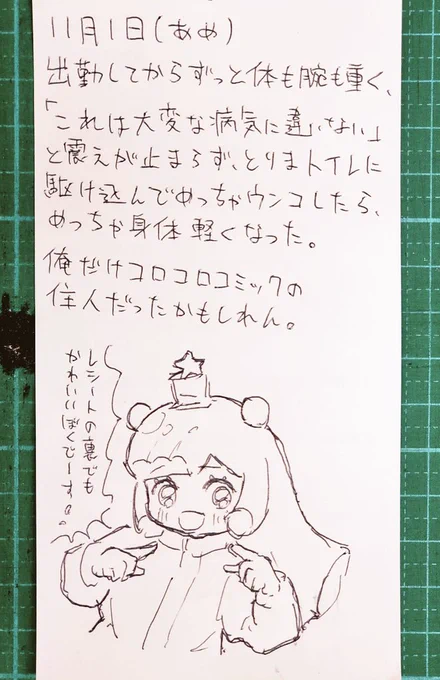 11月1日(あめ)
出勤してからずっと体も腕も重く、
「これは大変な病気に違いない」
と震えが止まらず、とりまトイレに
駆け込んでめっちゃウンコしたら、
めっちゃ身体軽くなった。
俺だけコロコロコミックの
住人だったかもしれん。
レシートの裏でも
かわいいぼくでーす。。